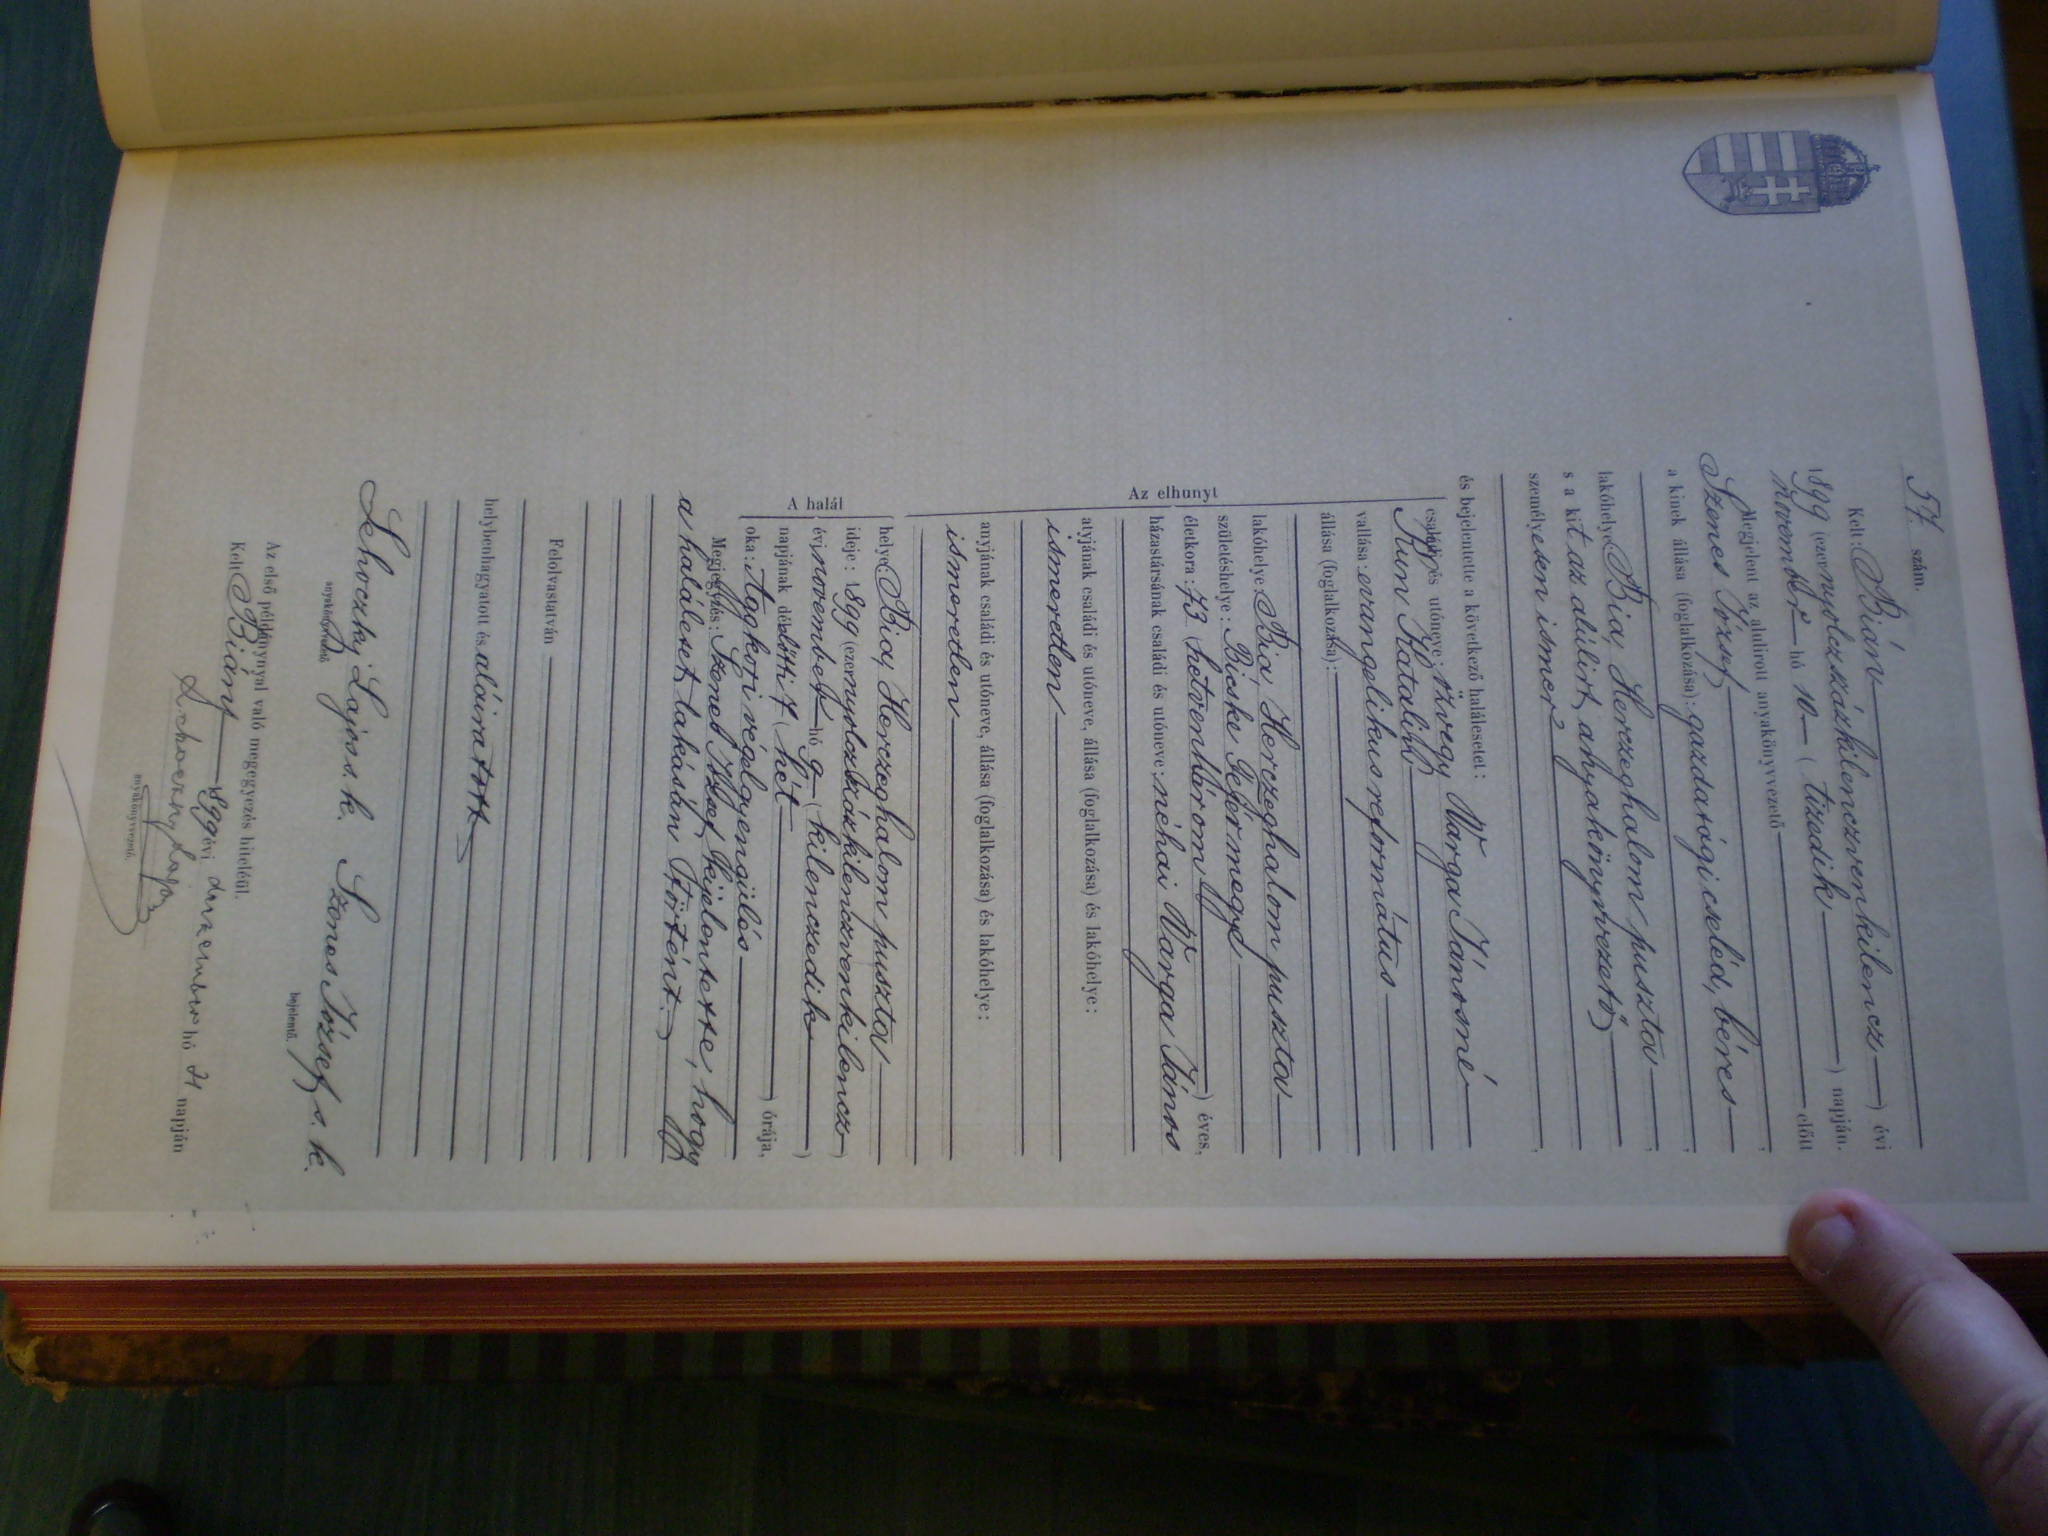 57. szám.
Kelt: Bián
1899 (ezernyolczszázkilenczvenkilencz) évi
november hó 10 (tizedik) napján.
Megjelent az alulirott anyakönyvvezető előtt
Szemes József
a kinek állása (foglalkozása): gazdasági cseléd, béres,
lakóhelye Bia, Herczeghalom puszta,
s a kit az alúlirt anyakönyvvezető
személyesen ismer,
és bejelentette a következő halálesetet:
családi és utóneve: özvegy Varga Jánosné
Kun Katalin
vallása: evangelikus református
állása (foglalkozása):
Az elhunyt
lakóhelye: Bia, Herczeghalom puszta
születéshelye: Bicske Fejérmegye
életkora: 73 (hetvenhárom) éves,
házastársának családi és utóneve: néhai Varga János
atyjának családi és utóneve, állása (foglalkozása) és lakóhelye:
ismeretlen
anyjának családi és utóneve, állása (foglalkozása) és lakóhelye:
ismeretlen
A halál
helye: Bia, Herczeghalom puszta
ideje: 1899 (ezernyolczszázkilenczvenkilencz)
évi november hó 9 (kilenczedik)
napjának délelőtti 7 (hét) órája,
oka: Aggkori végelgyengülés
Megjegyzés: Szemes József kijelentette, hogy
a haláleset lakásán történt.
Felolvastatván
helybenhagyatott és aláiratott
Schoczky Lajos s. k. Szemes József s. k.
anyakönyvvezető. bejelentő.
Az első példánynyal való megegyezés hiteléül.
Kelt Bián, 1899 évi deczember hó 31 napján
anyakönyvvezető.